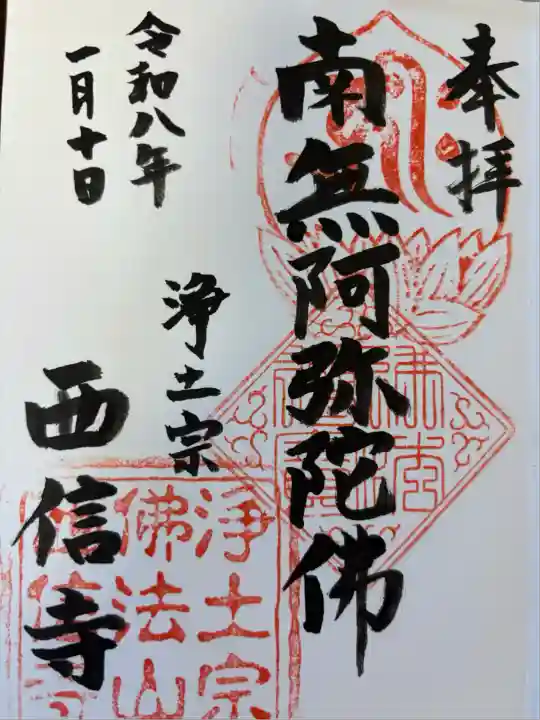 奉拝
南無阿弥陀佛
浄土宗
西信寺
令和八年
一月十日
浄土宗
佛法山
西信寺